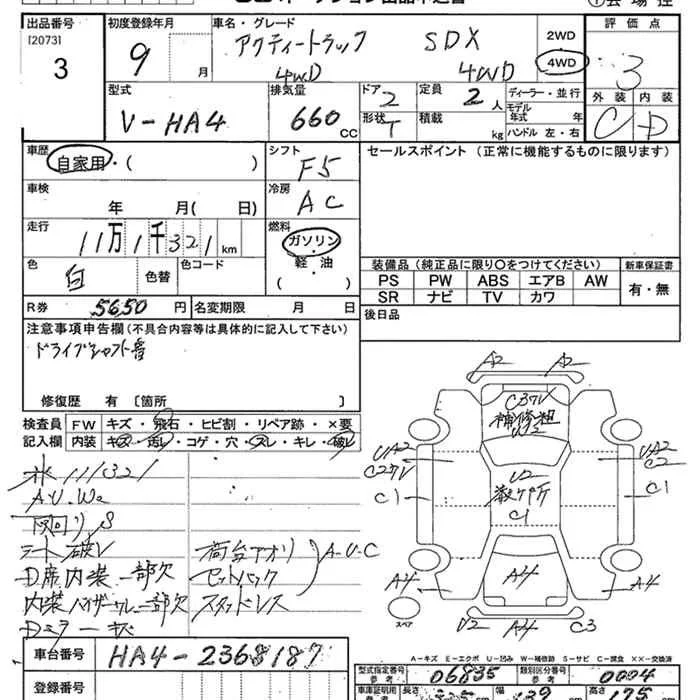 出品番号
[2073]
3
初度登録年月
9 月
車名・グレード
アクティートラック SDX
4WD 4WD
2WD
4WD
評価点
3
型式
V-HA4
排気量
660 cc
ドア
2
形状
T
定員
2人
積載 kg
ディーラー・並行
モデル年式 年
ハンドル 左・右
外装 内装
C D
車歴
自家用・( )
シフト
F5
セールスポイント (正常に機能するものに限ります)
車検
年 月( 日)
冷房
AC
走行
11万1千321 km
燃料
ガソリン
軽・油
( )
色
白
色替
色コード
装備品(純正品に限り○をつけてください)
PS PW ABS エアB AW
SR ナビ TV カワ
新車保証書
有・無
R券 5650円
名変期限 月 日
後日品
注意事項申告欄(不具合内容等は具体的に記入して下さい)
ドライブシャフト音
修復歴 有 〔箇所 〕
検査員記入欄
FW キズ・飛石・ヒビ割・リペア跡・×要
内装 キズ・汚レ・コゲ・穴・スレ・キレ・破レ
111321
A.U.W2
下回りS
シート破レ
D席内装一部欠
内装バイザークレー部欠
Dミラーキズ
荷台アオリ A-U-C
セットバック
スタッドレス
A2 A2
補修粗
U2
C1
UA2
C1
UA2
C2
C1
A4
A4
A4
U2 A4 C3
スペア
A-キズ E-エクボ U-凹み W-補修跡 S-サビ C-腐食 XX-交換済
車台番号
HA4-2368187
登録番号
型式指定番号
参考
06835
類別区分番号
参考
0004
車庫証明用
参考
長さ
幅
高さ